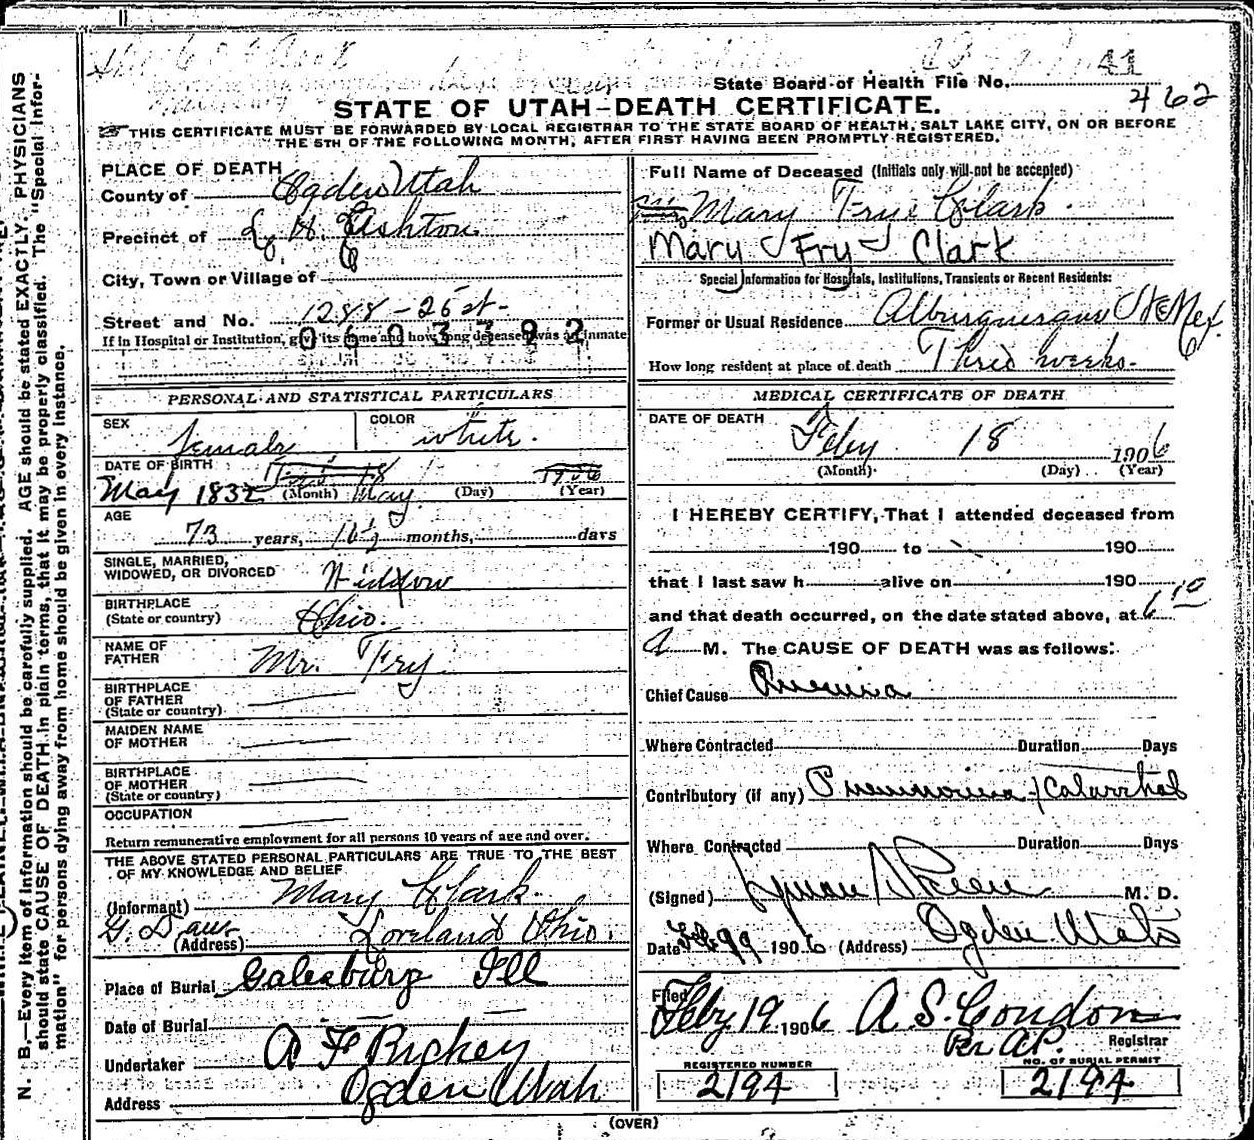 State Board of Health File No. 41
462
STATE OF UTAH—DEATH CERTIFICATE.
THIS CERTIFICATE MUST BE FORWARDED BY LOCAL REGISTRAR TO THE STATE BOARD OF HEALTH, SALT LAKE CITY, ON OR BEFORE
THE 5TH OF THE FOLLOWING MONTH, AFTER FIRST HAVING BEEN PROMPTLY REGISTERED.
N. B.—Every item of information should be carefully supplied. AGE should be stated EXACTLY. PHYSICIANS
should state CAUSE OF DEATH in plain terms, that it may be properly classified. The "Special Infor-
mation" for persons dying away from home should be given in every instance.
PLACE OF DEATH
County of Ogden Utah
Precinct of L. H. Ashton
City, Town or Village of
Street and No. 1288 - 25 st.
If in Hospital or Institution, give its name and how long deceased was inmate
0603792
PERSONAL AND STATISTICAL PARTICULARS
SEX female
COLOR white.
DATE OF BIRTH
May 1832 (Month) May (Day) (Year)
AGE
73 years, months, days
SINGLE, MARRIED,
WIDOWED, OR DIVORCED Widow
BIRTHPLACE
(State or country) Ohio.
NAME OF
FATHER Mr. Fry
BIRTHPLACE
OF FATHER
(State or country)
MAIDEN NAME
OF MOTHER
BIRTHPLACE
OF MOTHER
(State or country)
OCCUPATION
Return remunerative employment for all persons 10 years of age and over.
THE ABOVE STATED PERSONAL PARTICULARS ARE TRUE TO THE BEST
OF MY KNOWLEDGE AND BELIEF
(Informant) Mary Clark.
G. Daur
(Address) Loveland Ohio.
Place of Burial Galesburg Ill
Date of Burial
Undertaker A F Rickey
Address Ogden Utah
Full Name of Deceased (Initials only will not be accepted)
Mary Frye Clark.
Mary Fry Clark
Special Information for Hospitals, Institutions, Transients or Recent Residents:
Former or Usual Residence Alburquerque N Mex.
How long resident at place of death Three weeks.
MEDICAL CERTIFICATE OF DEATH
DATE OF DEATH
Feby 18 1906
(Month) (Day) (Year)
I HEREBY CERTIFY, That I attended deceased from
190 to 190
that I last saw h alive on 190
and that death occurred, on the date stated above, at 6 10
A M. The CAUSE OF DEATH was as follows:
Chief Cause
Where Contracted Duration Days
Contributory (if any) Pneumonia Catarrhal
Where Contracted Duration Days
(Signed) M. D.
Date 1906 (Address) Ogden Utah
Filed
Feby 19 1906 A. S. Condon
Per A.P. Registrar
REGISTERED NUMBER
2194
NO. OF BURIAL PERMIT
2194
(OVER)